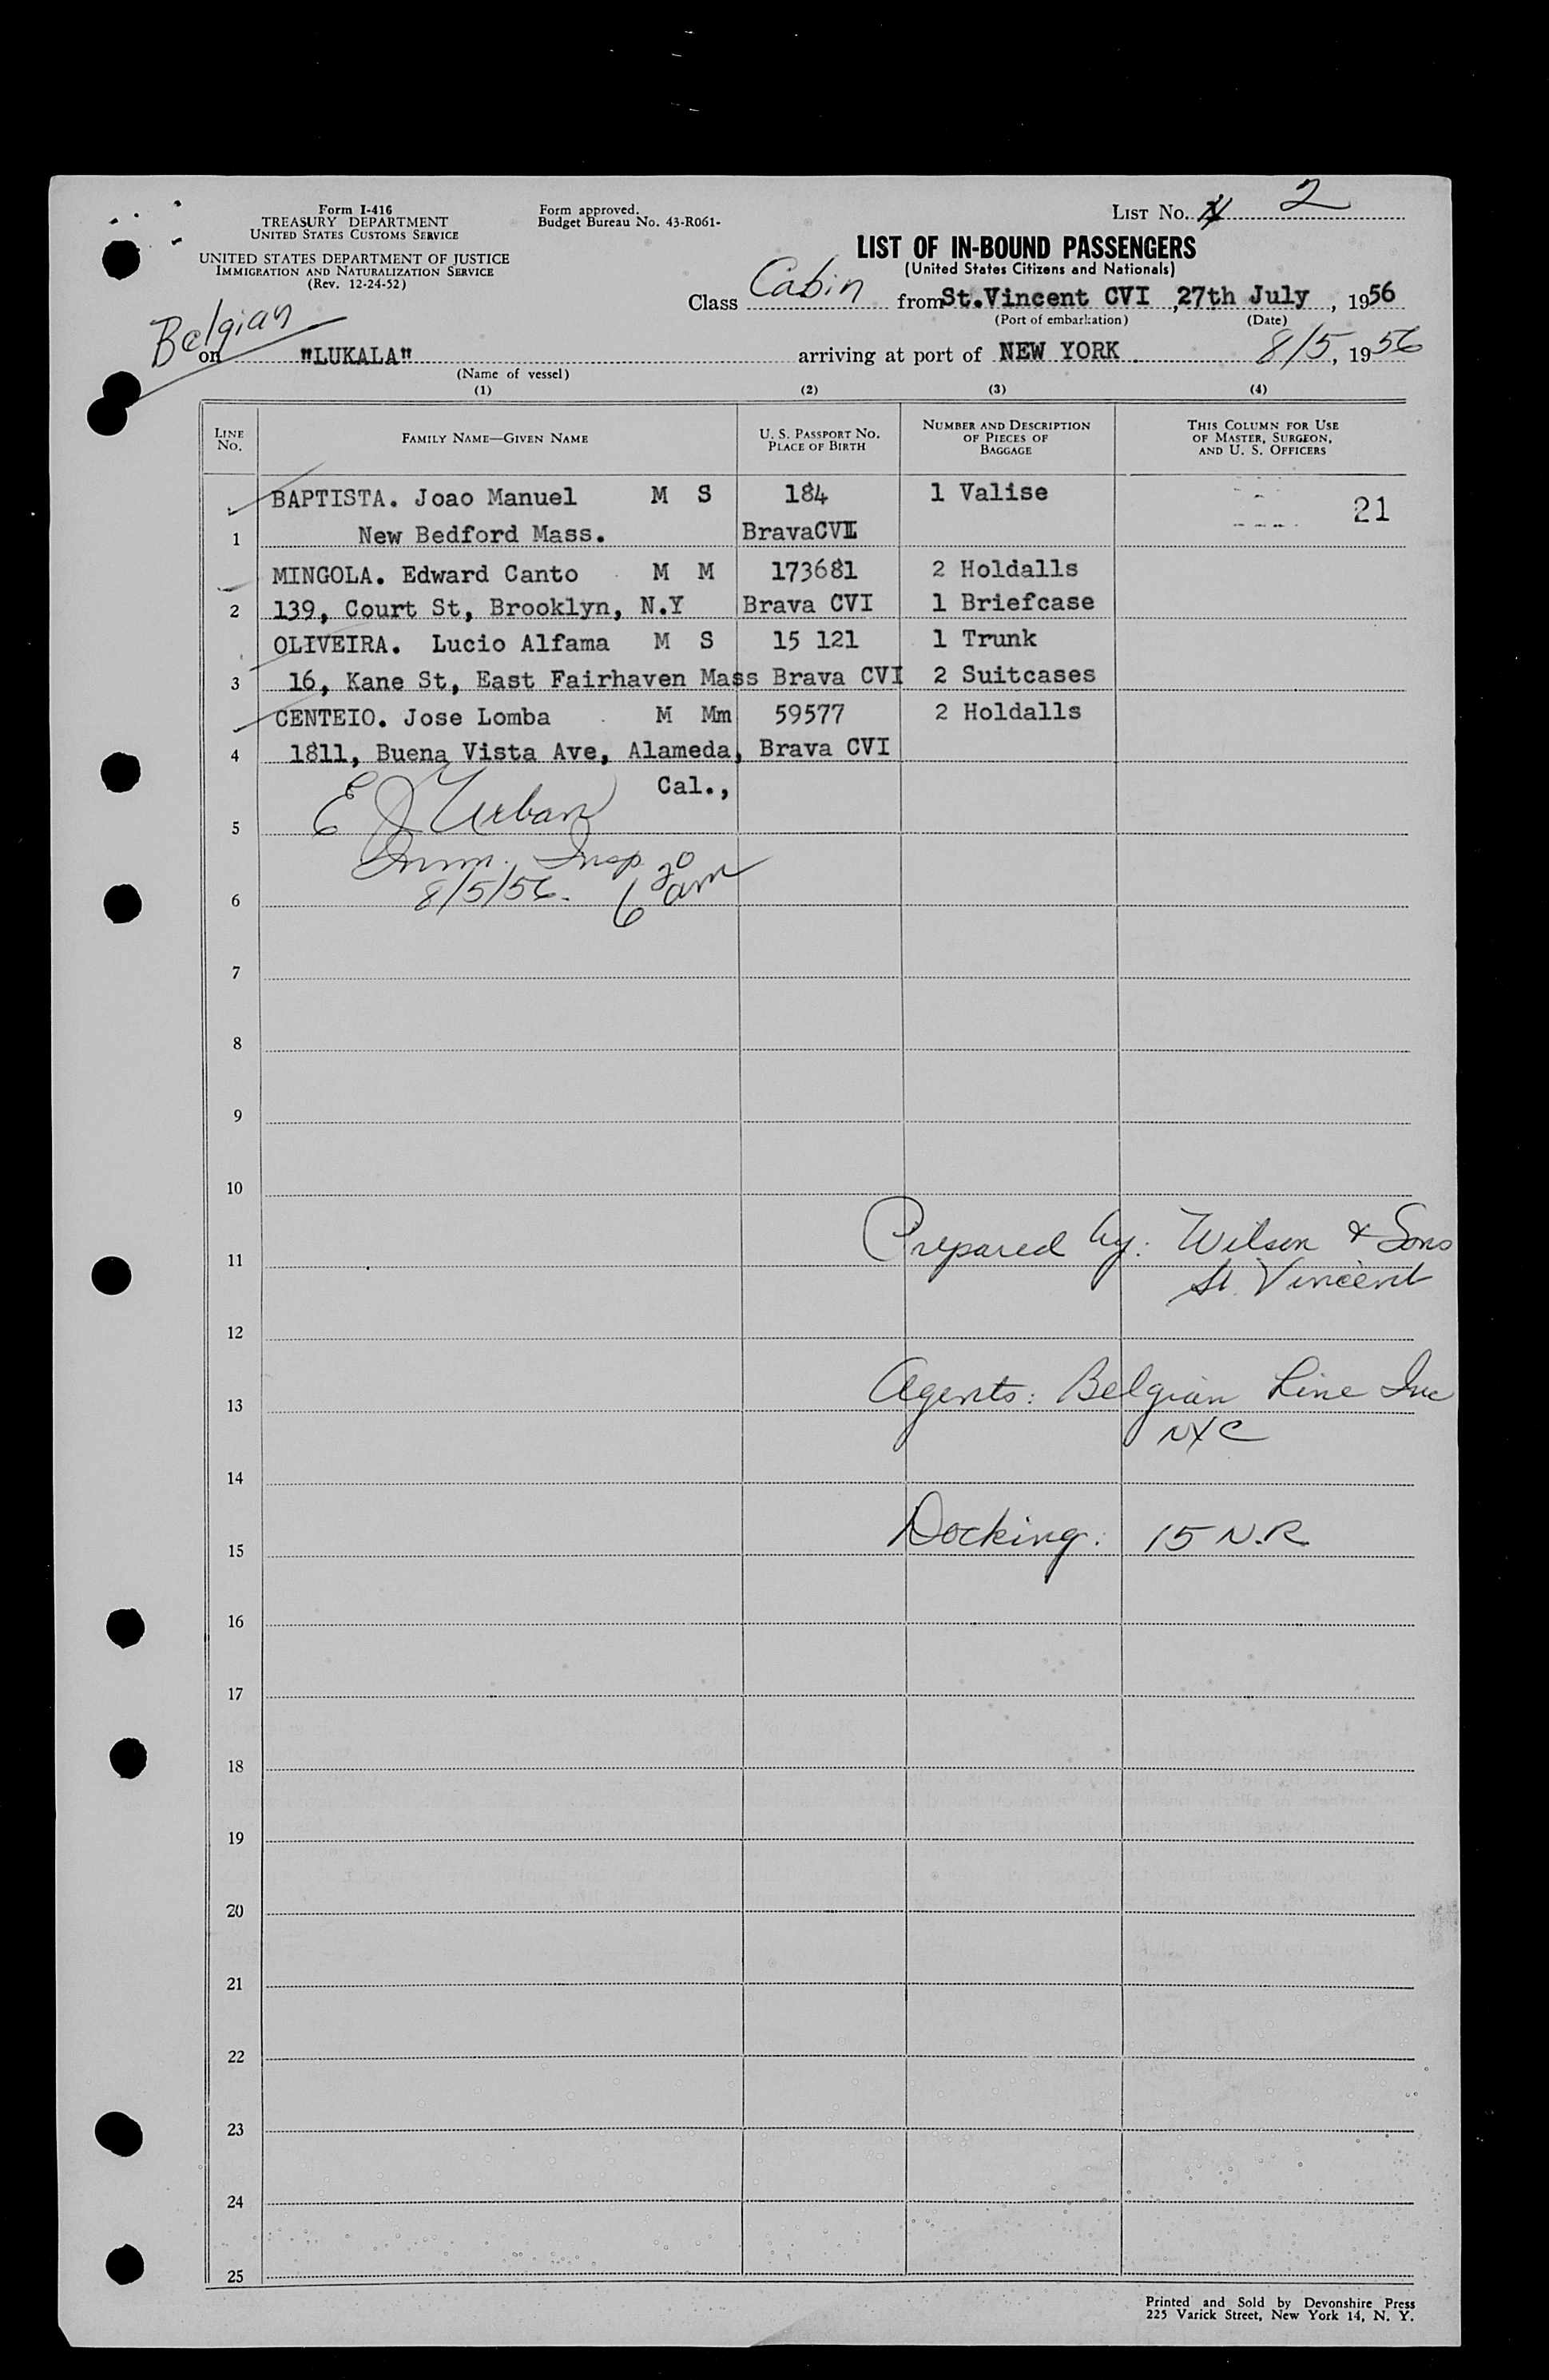 Form I-416
TREASURY DEPARTMENT
UNITED STATES CUSTOMS SERVICE
UNITED STATES DEPARTMENT OF JUSTICE
IMMIGRATION AND NATURALIZATION SERVICE
(Rev. 12-24-52)
Form approved.
Budget Bureau No. 43-R061-
LIST No. 2
LIST OF IN-BOUND PASSENGERS
(United States Citizens and Nationals)
Class Cabin from St.Vincent CVI , 27th July , 1956
(Port of embarkation) (Date)
Belgian
on "LUKALA" arriving at port of NEW YORK 8/5, 1956
(Name of vessel)
(1) (2) (3) (4)
LINE No. FAMILY NAME—GIVEN NAME U. S. PASSPORT No. PLACE OF BIRTH NUMBER AND DESCRIPTION OF PIECES OF BAGGAGE THIS COLUMN FOR USE OF MASTER, SURGEON, AND U. S. OFFICERS
BAPTISTA. Joao Manuel M S 184 1 Valise 21
1 New Bedford Mass. BravaCVI
MINGOLA. Edward Canto M M 173681 2 Holdalls
2 139, Court St, Brooklyn, N.Y Brava CVI 1 Briefcase
OLIVEIRA. Lucio Alfama M S 15 121 1 Trunk
3 16, Kane St, East Fairhaven Mass Brava CVI 2 Suitcases
CENTEIO. Jose Lomba M Mm 59577 2 Holdalls
4 1811, Buena Vista Ave, Alameda, Brava CVI
Cal.,
5 E J Urban
Imm. Insp
6 8/5/56. 6 30 am
7
8
9
10
11 Prepared by: Wilson & Sons
St. Vincent
12
13 Agents: Belgian Line Inc
NYC
14
15 Docking: 15 N.R.
16
17
18
19
20
21
22
23
24
25
Printed and Sold by Devonshire Press
225 Varick Street, New York 14, N. Y.